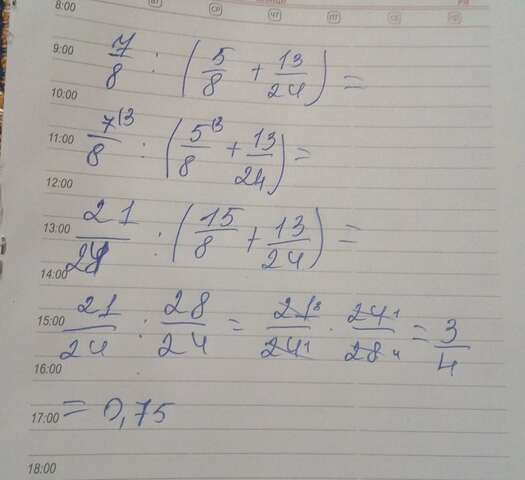 8:00 ВТ СР ЧТ ПТ СБ ВС
9:00 7/8 : (5/8 + 13/24) =
10:00
11:00 7⁽³/8 : (5⁽³/8 + 13/24) =
12:00
13:00 21/24 : (15/8 + 13/24) =
14:00
15:00 21/24 : 28/24 = 21³/24¹ · 24¹/28⁴ = 3/4
16:00
17:00 = 0,75
18:00